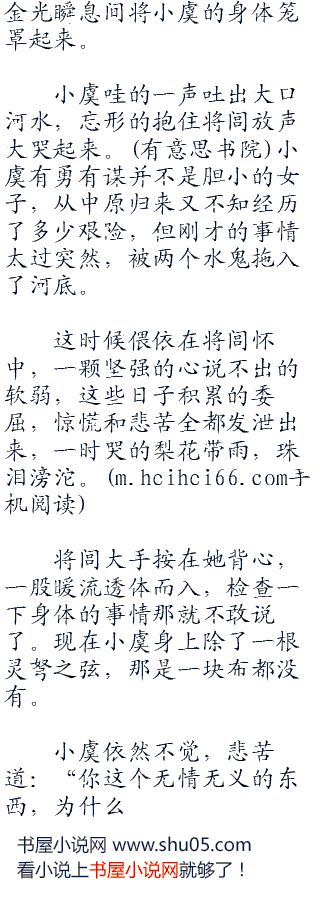 金光瞬息间将小虞的身体笼
罩起来。
小虞哇的一声吐出大口
河水，忘形的抱住将闾放声
大哭起来。(有意思书院)小
虞有勇有谋并不是胆小的女
子，从中原归来又不知经历
了多少艰险，但刚才的事情
太过突然，被两个水鬼拖入
了河底。
这时候偎依在将闾怀
中，一颗坚强的心说不出的
软弱，这些日子积累的委
屈，惊慌和悲苦全都发泄出
来，一时哭的梨花带雨，珠
泪滂沱。(m.hcihci66.com手
机阅读)
将闾大手按在她背心，
一股暖流透体而入，检查一
下身体的事情那就不敢说
了。现在小虞身上除了一根
灵弩之弦，那是一块布都没
有。
小虞依然不觉，悲苦
道：“你这个无情无义的东
西，为什么
书屋小说网 www.shu05.com
看小说上书屋小说网就够了！